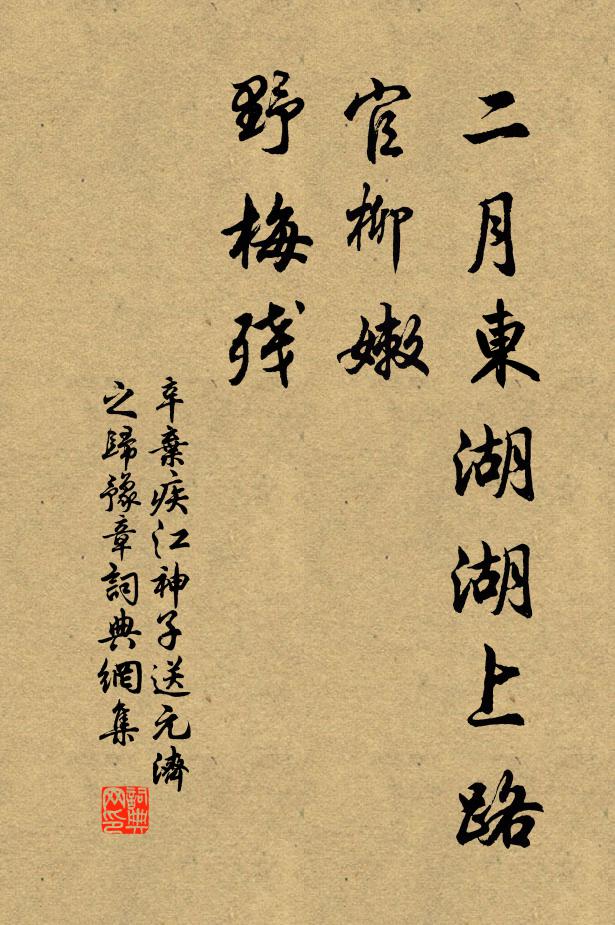 二月東湖湖上路
官柳嫩
野梅殘
辛棄疾江神子送元濟
之歸豫章詞典網集
詞典
网印